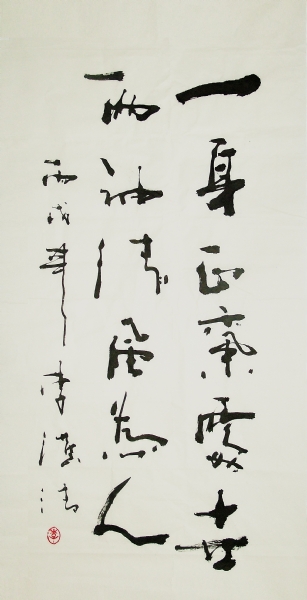 一身正氣處世
兩袖清風為人
丙戌年 李漢